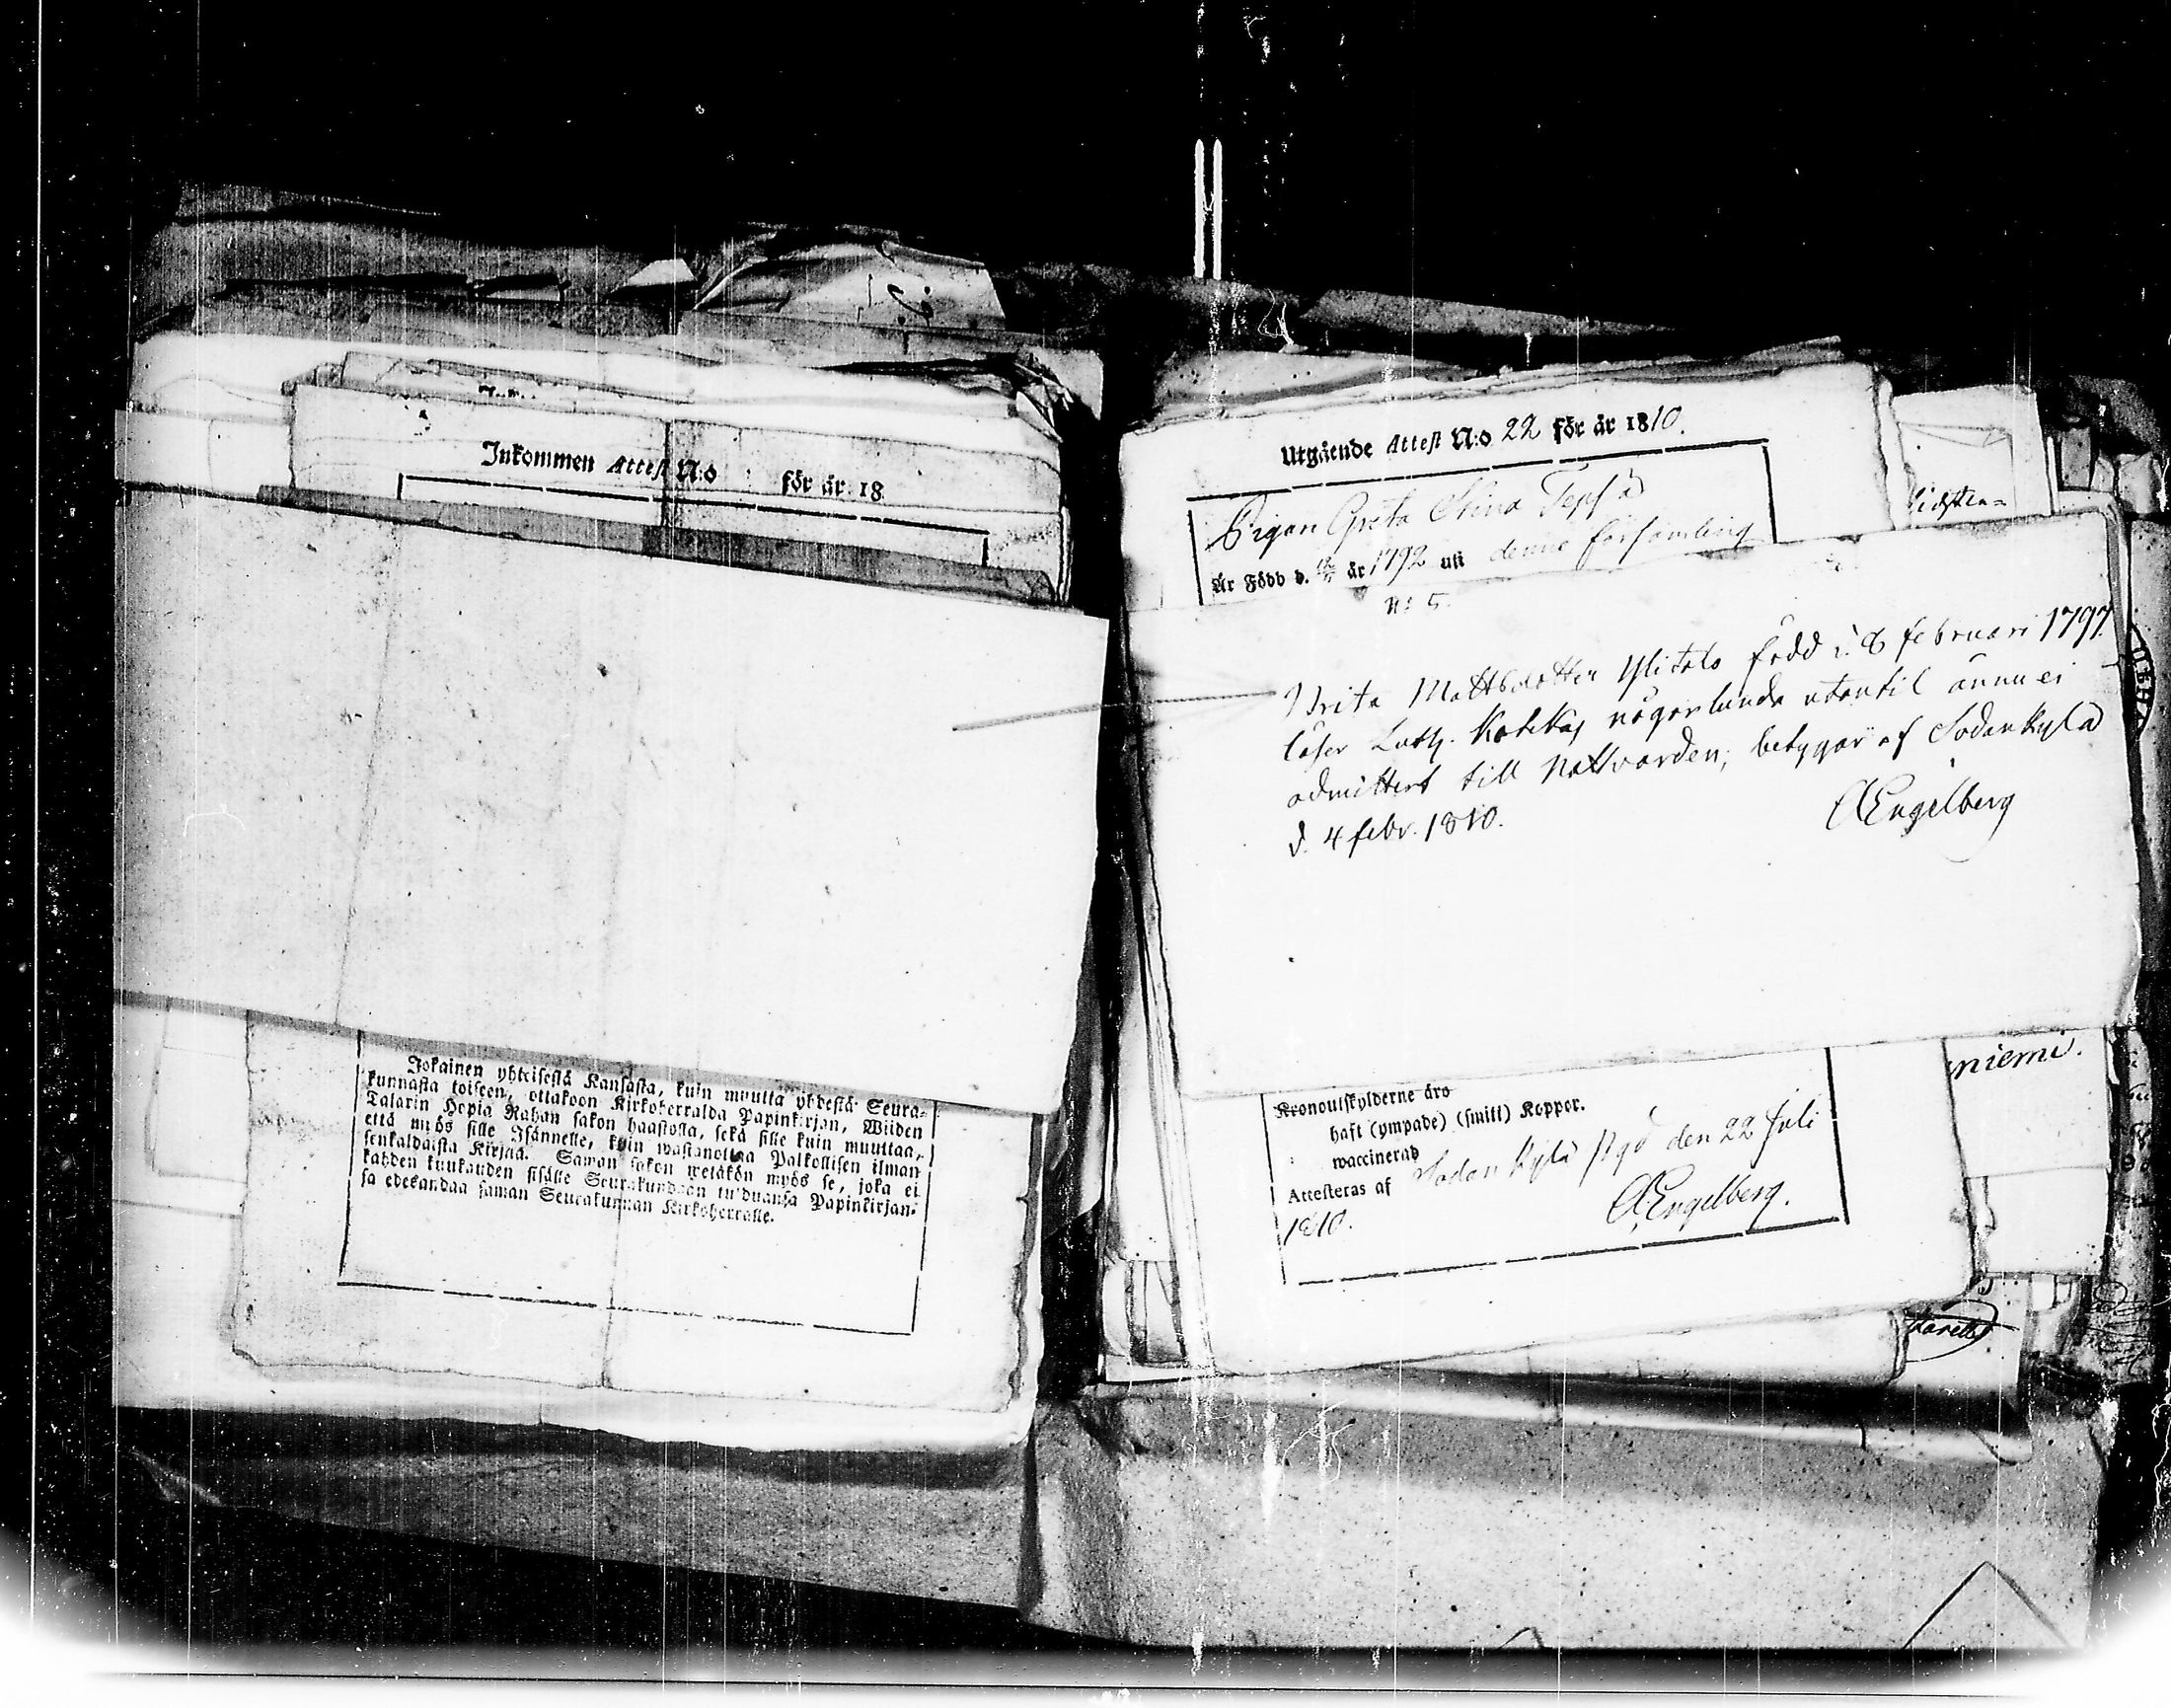 Inkommen Attest N:o för år 18
Jokainen yhteisestä Kansasta, kuin muutta yhdestä Seura-
kunnasta toiseen, ottakoon Kirkoherralda Papinkirjan, Wiiden
Talarin Hopia Rahan sakon haastolla, sekä sille kuin muuttaa,
että myös sille Isännelle, kuin wastanottaa Palkollisen ilman
senkaldaista Kirjaa. Saman sakon wetäkön myös se, joka ei
kahden kuukauden sisälle Seurakundaan tulduansa Papinkirjan-
sa edesandaa saman Seurakunnan Kirkoherralle.
Utgående Attest N:o 22 för år 1810.
Pigan Greta Stina
Är Född d. år 1792 uti denna församling
N: 5.
Brita Mattsdotter Ylitalo född d. 8 februari 1797
läser Luth. någorlunda utantil ännu ei
admittert till Nattvarden; betygar af Sodankylä
d. 4 febr. 1810.
AEngelberg
Kronoutskylderne äro
haft (ympade) (smitt) Koppor.
waccinerad
Attesteras af Sodankylä den 22 Juli
1810.
AEngelberg.
niemi.